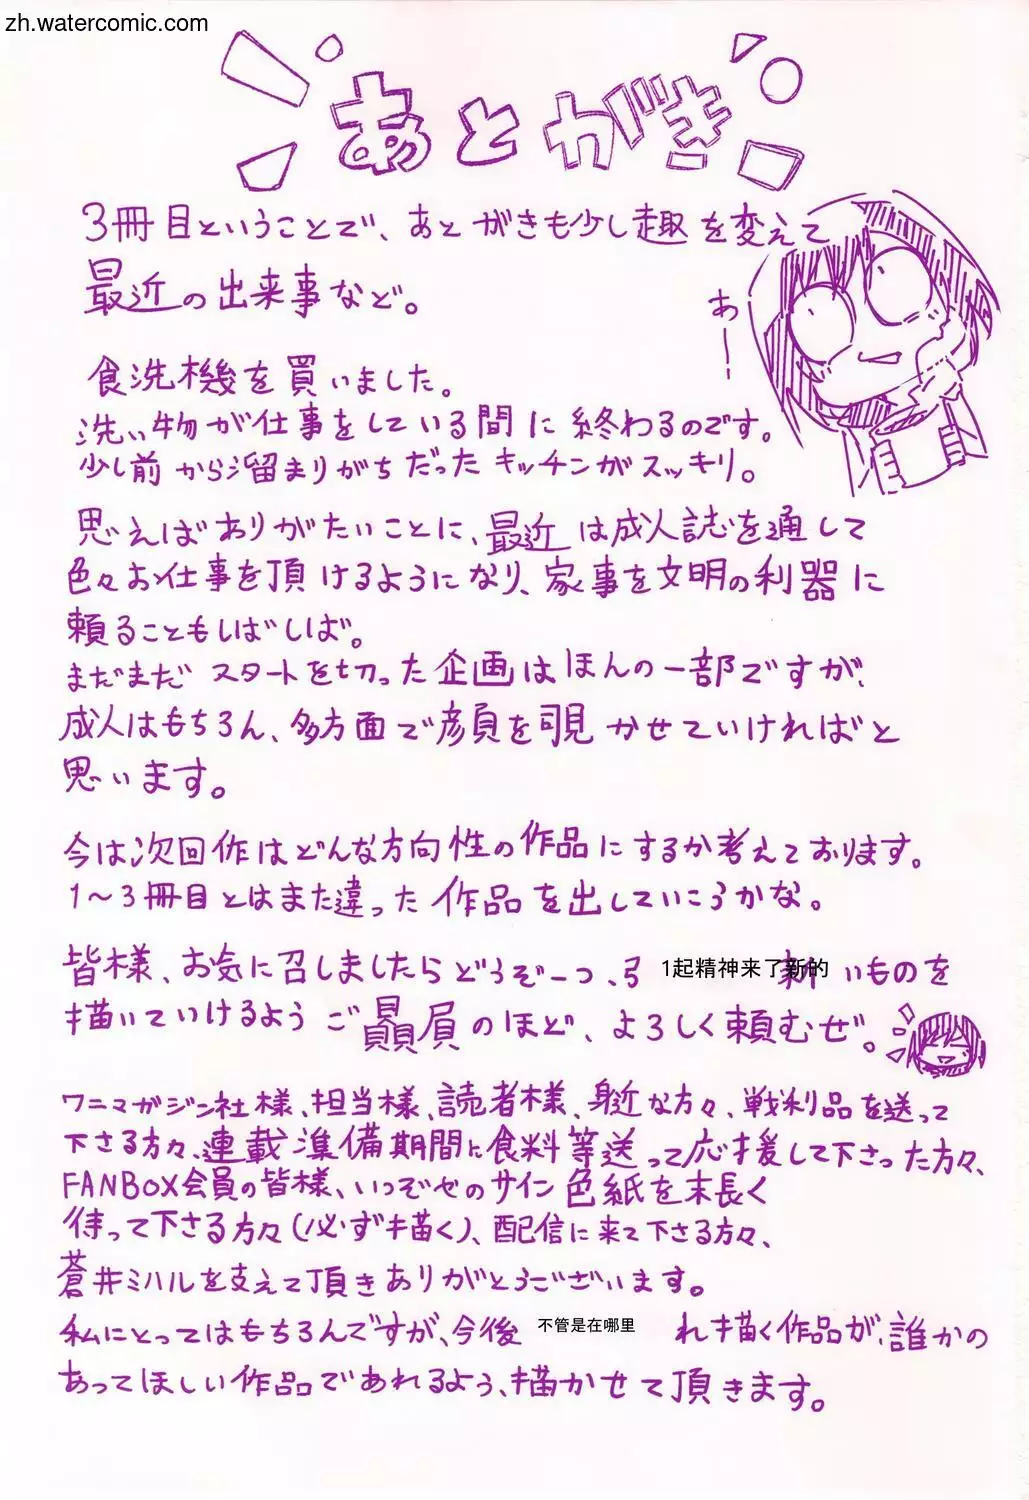 zh.watercomic.com
あとがき
3冊目ということで、あとがきも少し趣を変えて
最近の出来事など。
あーー
食洗機を買いました。
洗い物が仕事をしている間に終わるのです。
少し前から溜まりがちだったキッチンがスッキリ。
思えばありがたいことに、最近は成人誌を通して
色々お仕事を頂けるようになり、家事を文明の利器に
頼ることもしばしば。
まだまだスタートを切った企画はほんの一部ですが、
成人はもちろん、多方面で顔を覗かせていければと
思います。
今は次回作はどんな方向性の作品にするか考えております。
1～3冊目とはまた違った作品を出していこうかな。
皆様、お気に召しましたらどうぞ一つ、引 1起精神来了新的 いものを
描いていけるようご贔屓のほど、よろしく頼むぜ。
ワニマガジン社様、担当様、読者様、身近な方々、戦利品を送って
下さる方々、連載準備期間に食料等送って応援して下さった方々、
FANBOX会員の皆様、いつぞやのサイン色紙を末長く
待って下さる方々(必ず描く)、配信に来て下さる方々、
蒼井ミハルを支えて頂きありがとうございます。
私にとってはもちろんですが、今後 不管是在哪里 れ描く作品が、誰かの
あってほしい作品であれるよう、描かせて頂きます。